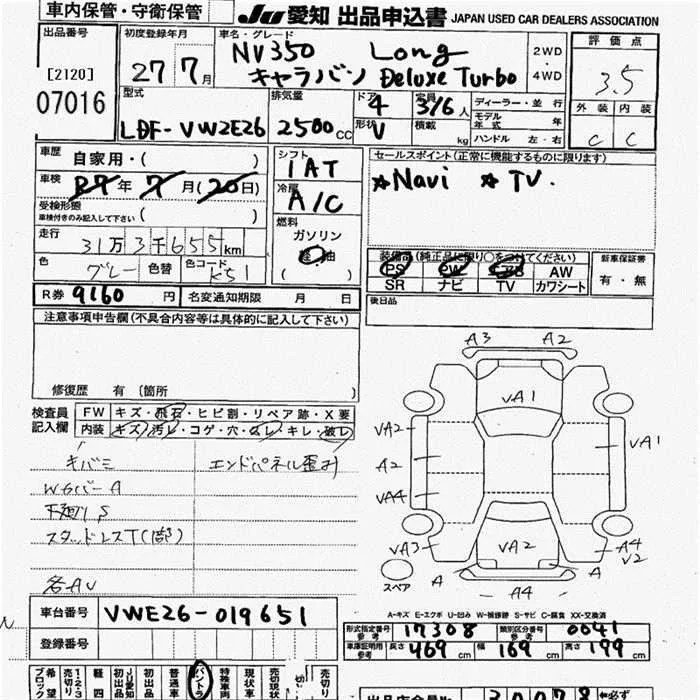 車内保管・守衛保管
JU 愛知 出品申込書 JAPAN USED CAR DEALERS ASSOCIATION
出品番号
[2120]
07016
初度登録年月
27 7月
車名・グレード
NV350 Long
キャラバン Deluxe Turbo
2WD
・
4WD
評価点
3.5
外装 内装
C C
型式
LDF-VW2E26
排気量
2500cc
ドア
4
形状
V
定員
3/6人
積載
kg
ディーラー・並行
モデル年式 年
ハンドル 左・右
車歴 自家用・( )
車検 R7年 7月(20日)
受検形態
車検付きのみ記入して下さい ( )
走行
31万3千655km
色 グレー 色替 色コード K51
シフト
IAT
冷房
A/C
燃料
ガソリン
軽油
セールスポイント(正常に機能するものに限ります)
☆Navi ☆TV.
装備品(純正品に限り○をつけてください)
PS PW エアB AW
SR ナビ TV カワシート
新車保証書
有・無
R券 9160円 名変通知期限 月 日
後日品
注意事項申告欄(不具合内容等は具体的に記入して下さい)
修復歴 有(箇所 )
検査員記入欄
FW キズ・飛石・ヒビ割・リペア跡・X要
内装 キズ・汚レ・コゲ・穴・ムレ・キレ・破レ
キバミ エンドパネル歪み
WカバーA
下廻りS
スタッドレスT(1部)
各AU
A3 A2
VA1
VA2
A2
VA4
VA3
VA1
VA2
A4
V2
A
A
A4
スペア
A-キズ E-エクボ U-凹み W-補修跡 S-サビ C-腐食 XX-交換済
車台番号 VWE26-019651
登録番号
形式指定番号 参考 17308 類別区分番号 参考 0041
車庫証明用 参考 長さ 469cm 幅 169cm 高さ 199cm
希望ブロック
売切り
1・2・3
軽四
初出品
JU愛知
初出品
普通車
バントラ
特殊車両
現状車
売切現状
売切り
出品店会員No.
30078
※必ず